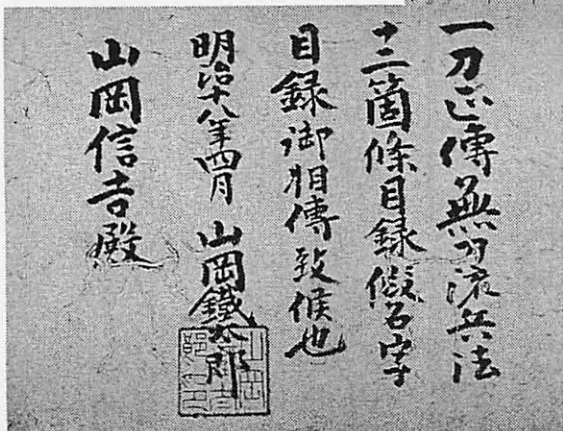 一刀正傳無刀流兵法
十二箇條目録假名字
目録御相傳致候也
明治十八年四月 山岡鐵太郎
山岡信吉殿